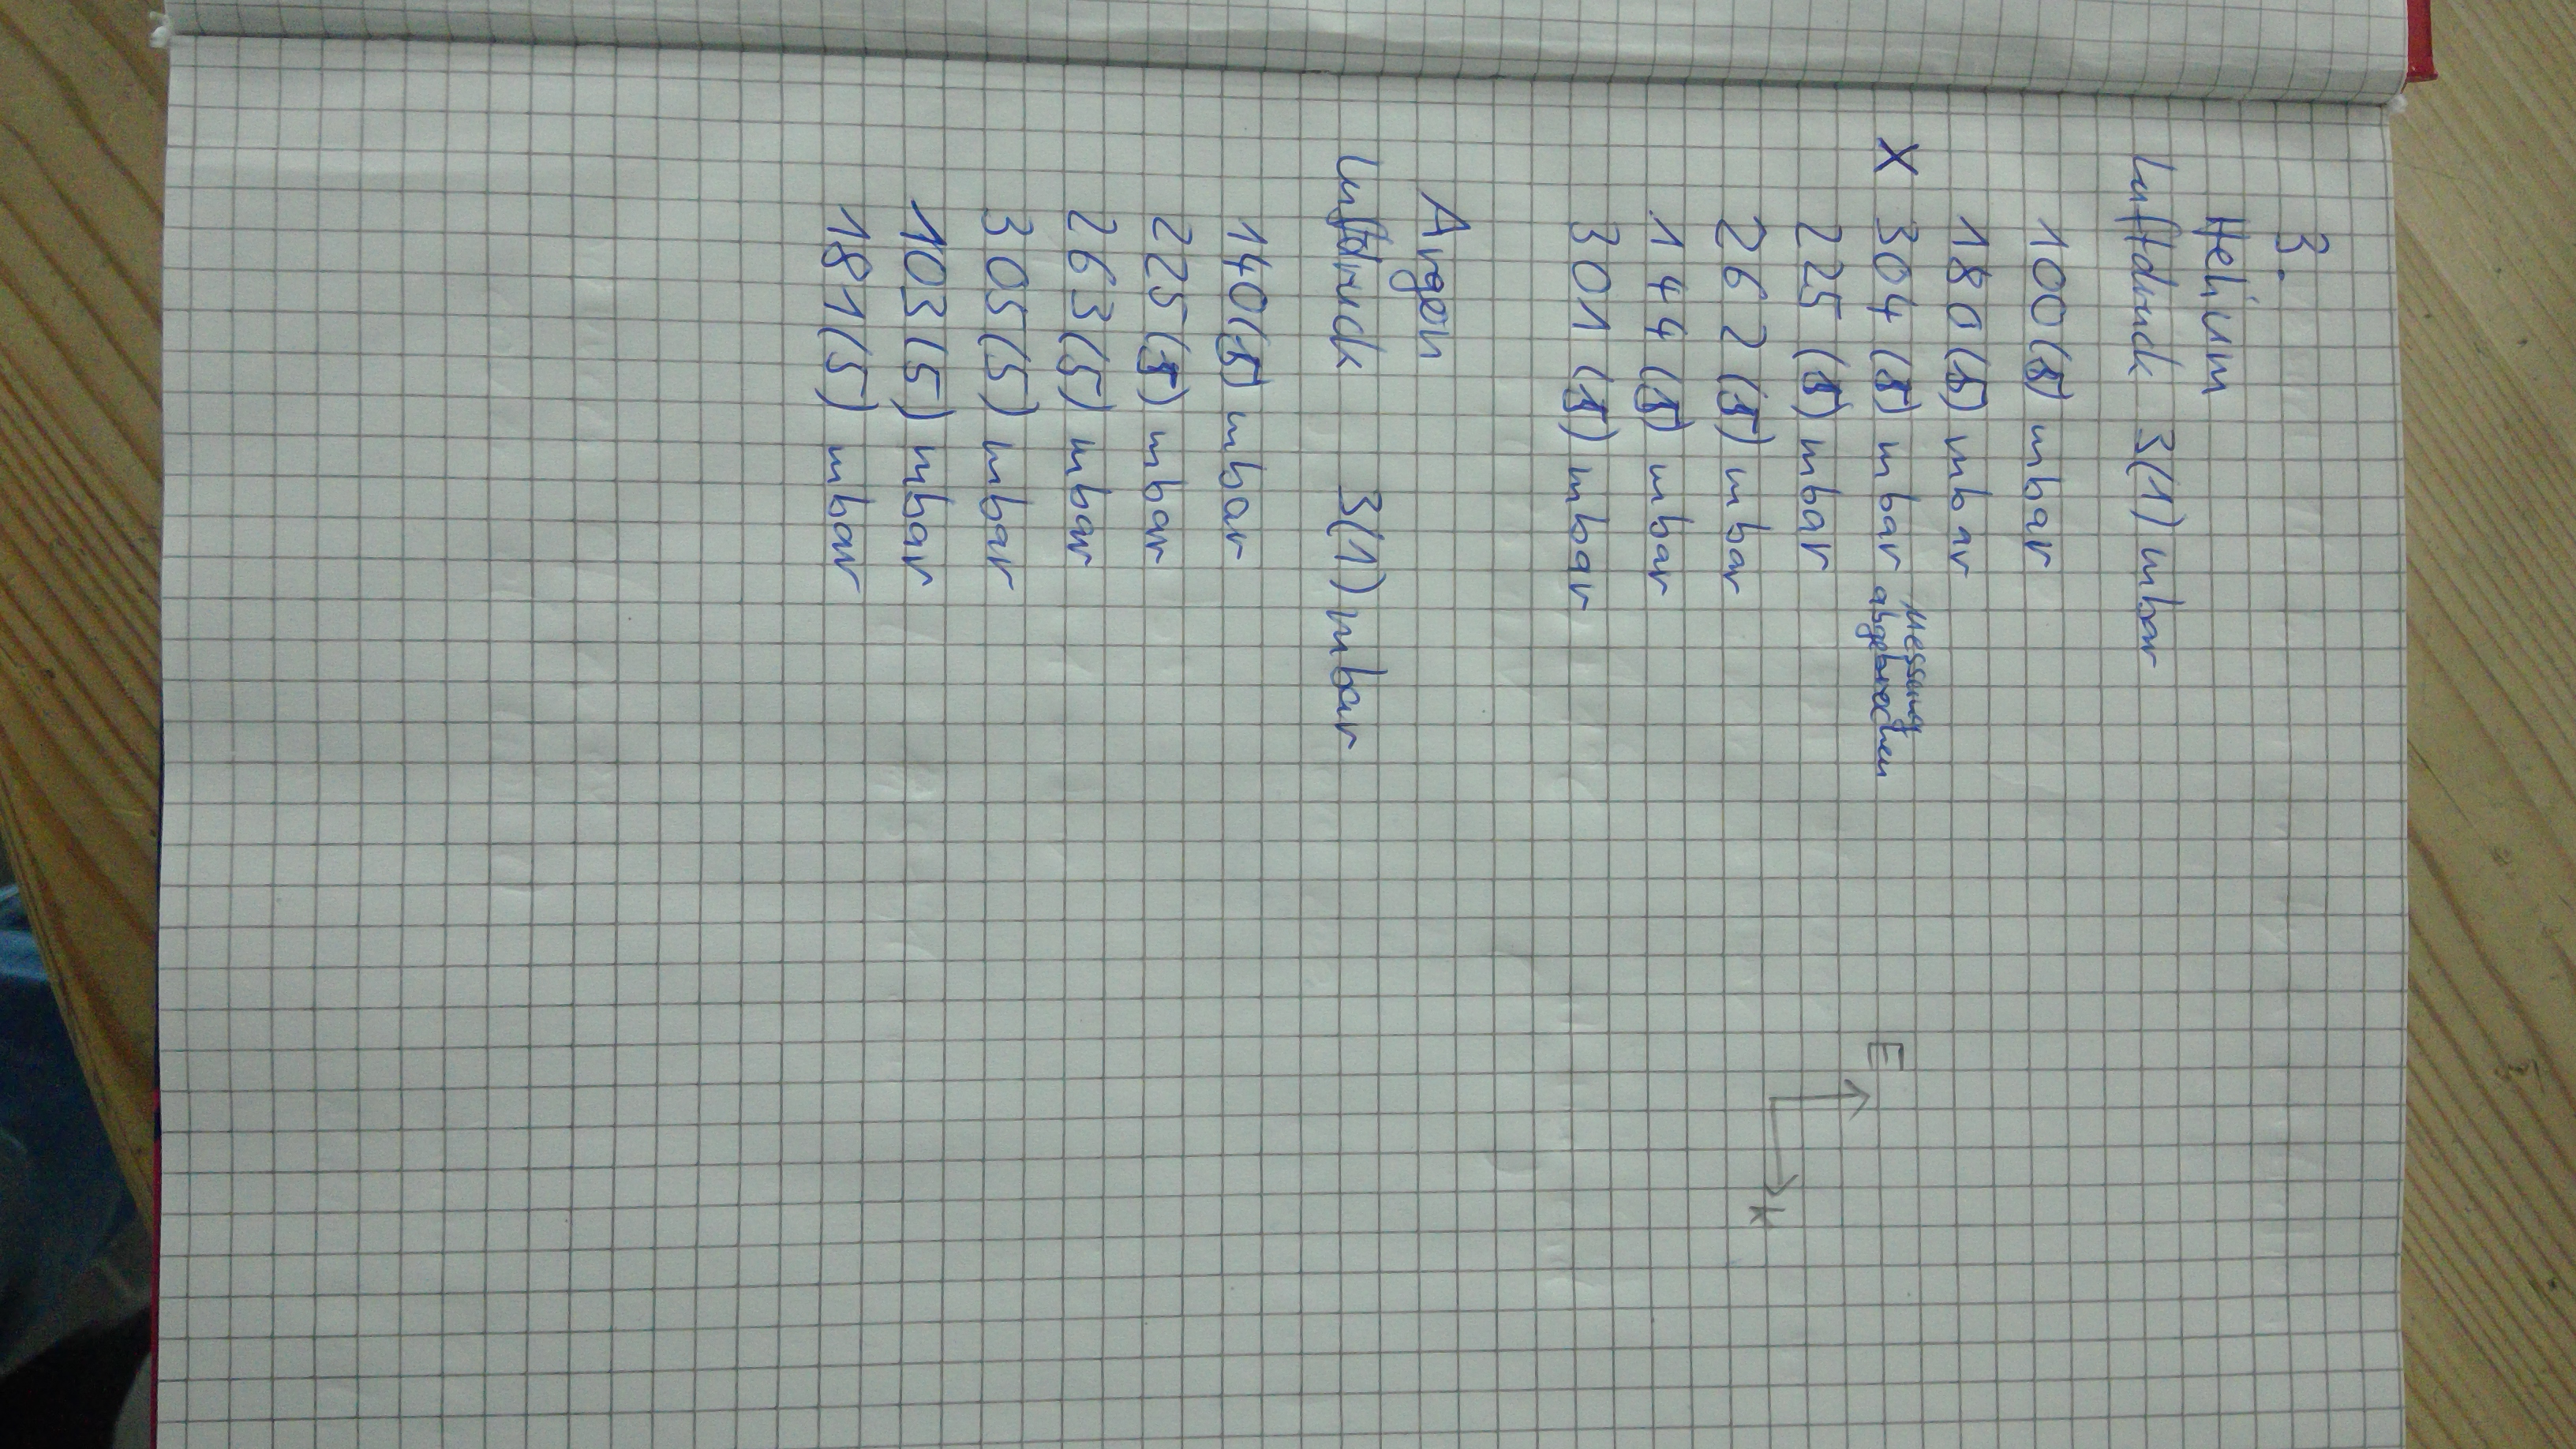 3.
Helium
Luftdruck 3(1) mbar
100(5) mbar
180(5) mbar
X 304(5) mbar Messung abgebrochen
225(5) mbar
262(5) mbar
144(5) mbar
301(5) mbar
Argon
Luftdruck 3(1) mbar
140(5) mbar
225(5) mbar
263(5) mbar
305(5) mbar
103(5) mbar
181(5) mbar
E